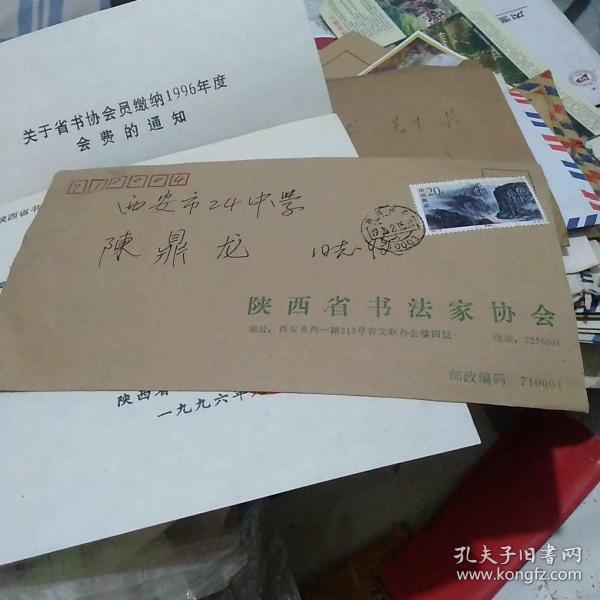 关于省书协会员缴纳1996年度
会费的通知
先生
陕西省书
西安市24中学
陳鼎龙 同志收
20
中国邮政
陕西省书法家协会
地址:西安市西一路213号省文联办公楼四层
电话:7216001
邮政编码 710004
陕西省
一九九六年
孔夫子旧书网
www.kongfz.com